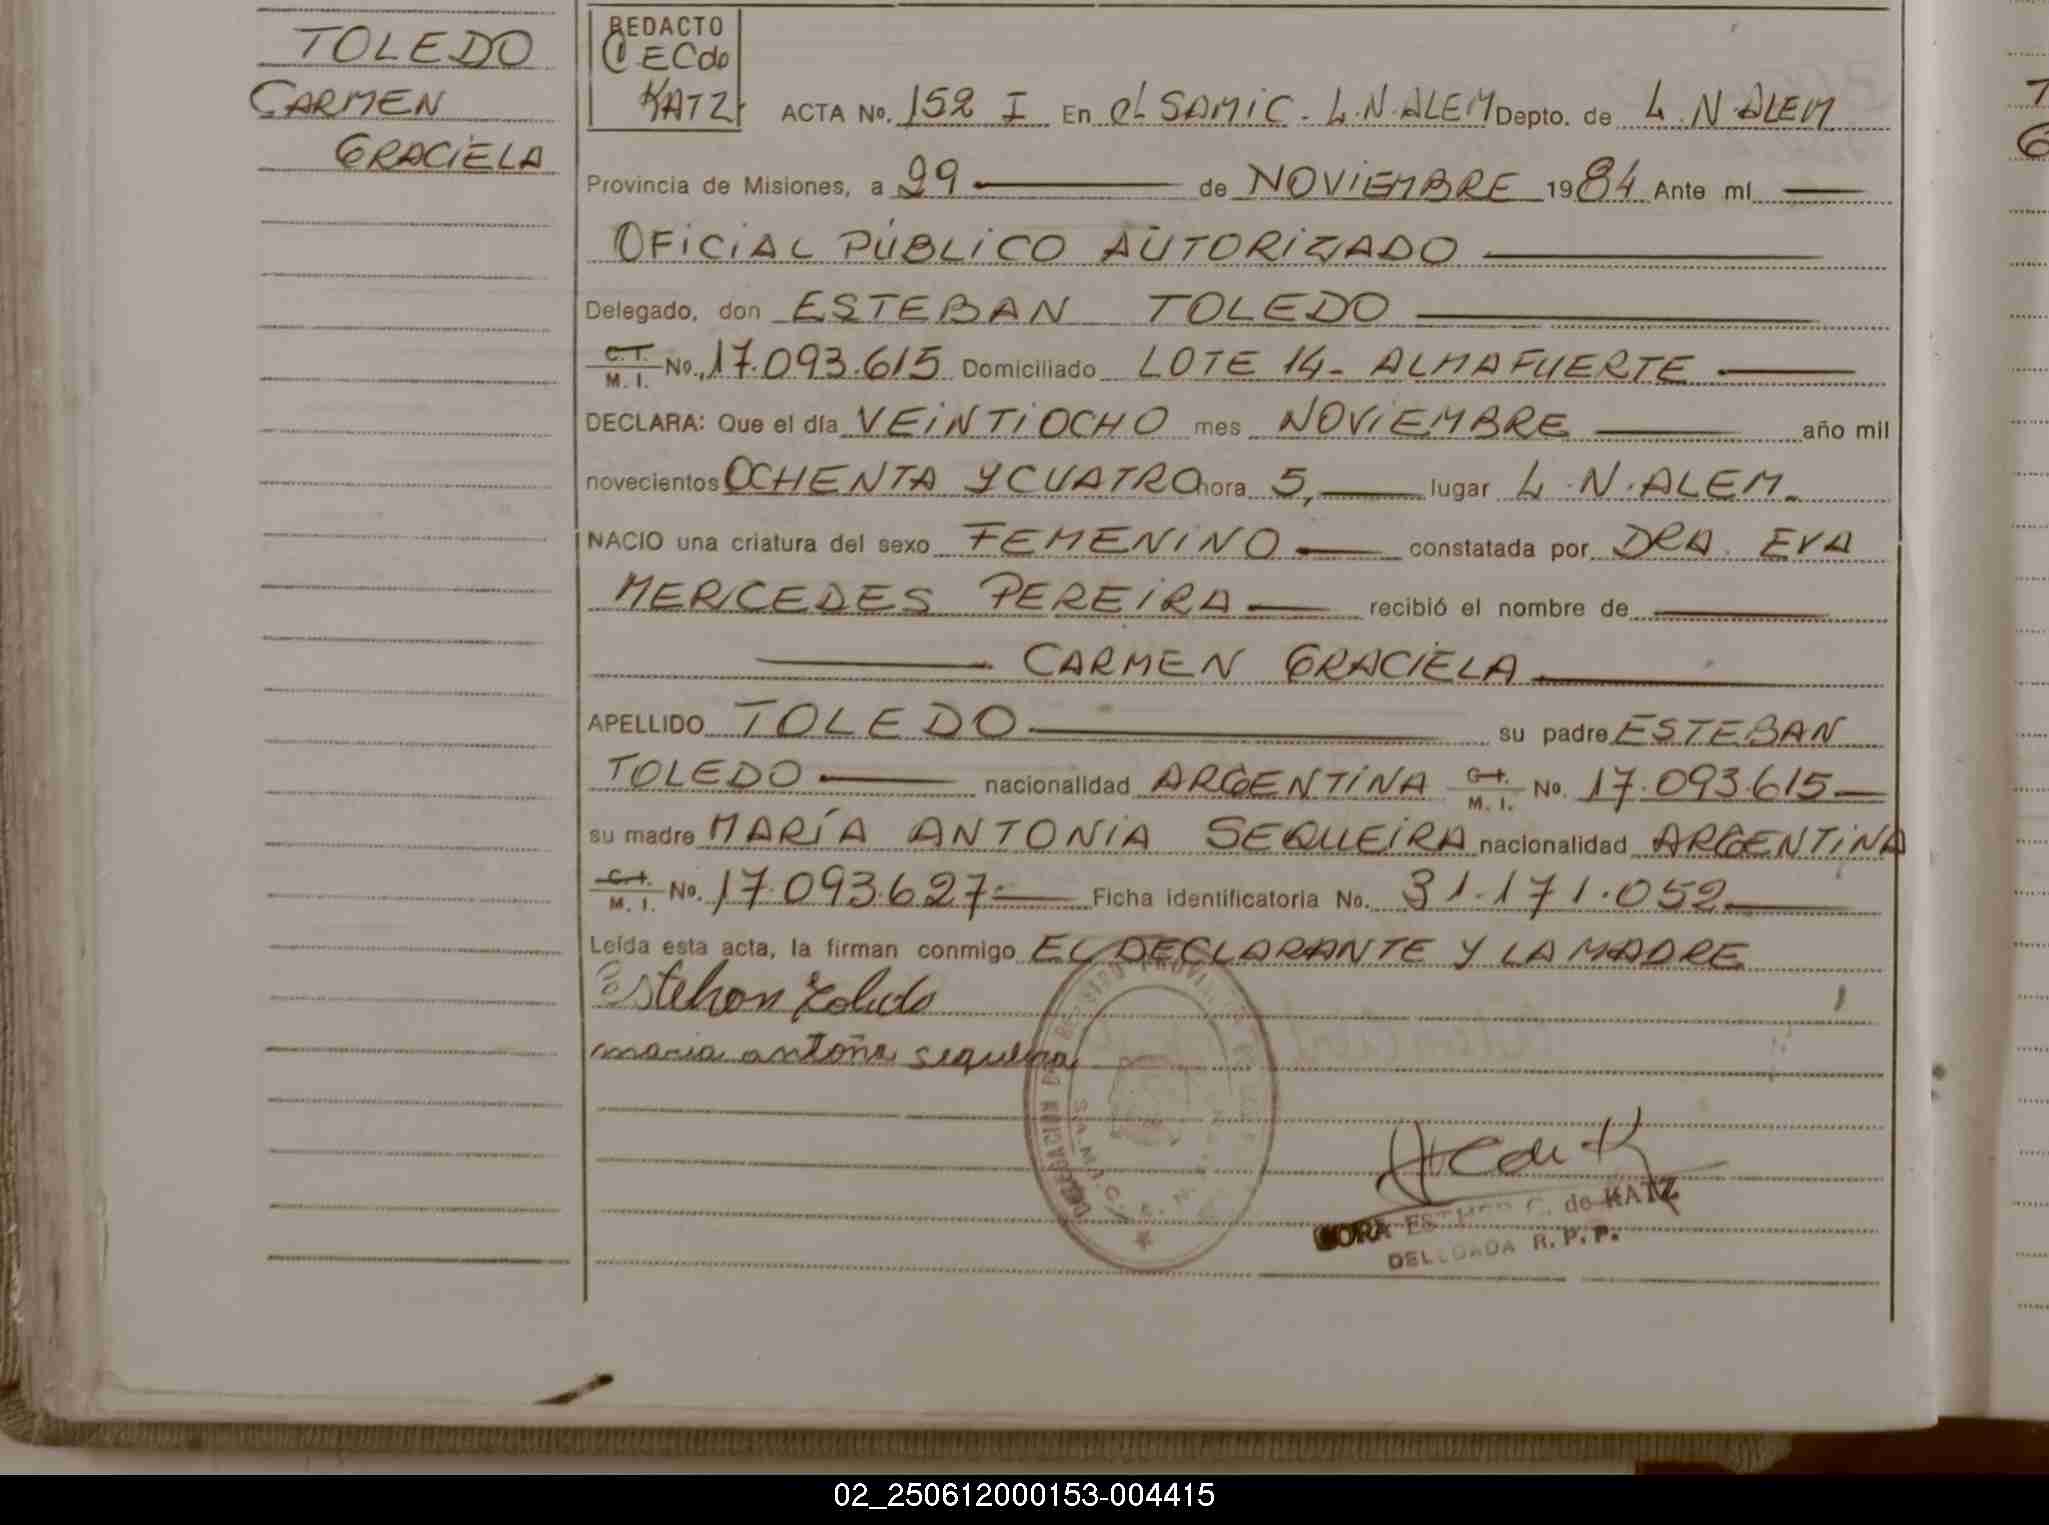 TOLEDO
CARMEN
GRACIELA
REDACTO
ECdo
KATZ
ACTA No. 152 I En el SAMIC. L.N.ALEM Depto. de L.N ALEM
Provincia de Misiones, a 29 de NOVIEMBRE 1984 Ante mí
OFICIAL PÚBLICO AUTORIZADO
Delegado, don ESTEBAN TOLEDO
C.I.
M. I. No. 17.093.615 Domiciliado LOTE 14- ALMAFUERTE
DECLARA: Que el día VEINTIOCHO mes NOVIEMBRE año mil
novecientos OCHENTA Y CUATRO hora 5, lugar L.N.ALEM.
NACIO una criatura del sexo FEMENINO constatada por DRA. EVA
MERCEDES PEREIRA recibió el nombre de
CARMEN GRACIELA
APELLIDO TOLEDO su padre ESTEBAN
TOLEDO nacionalidad ARGENTINA C.I. M. I. No. 17.093.615
su madre MARÍA ANTONIA SEQUEIRA nacionalidad ARGENTINA
C.I.
M. I. No. 17.093.627 Ficha identificatoria No. 31.171.052
Leída esta acta, la firman conmigo EL DECLARANTE Y LA MADRE
Esteban Toledo
maria antoña sequeira
DELEGACION S.A.M.I.C.
de KATZ
DELEGADA R. P. P.
02_250612000153-004415